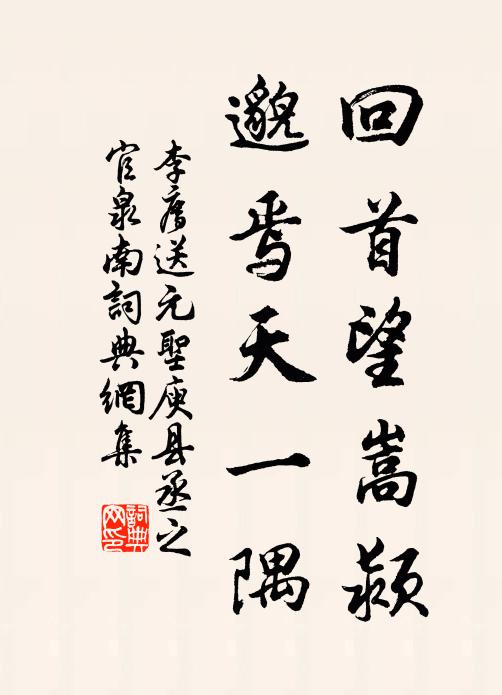 回首望嵩颍
邈焉天一隅
李廌送元聖庾县丞之
官泉南詞典網集
詞典网印